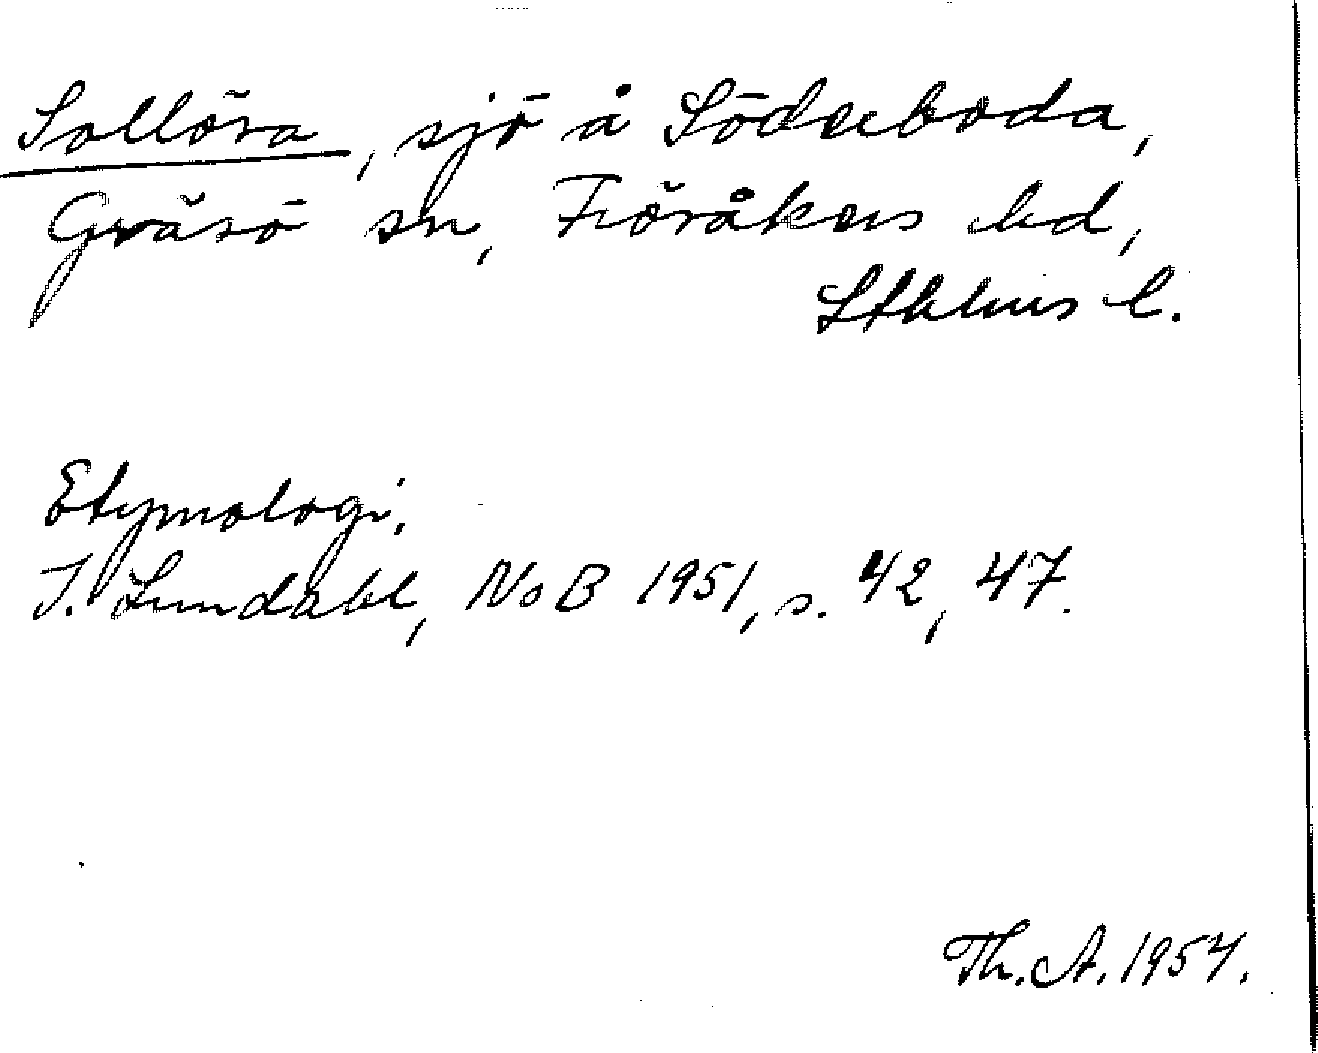 Sollöra, sjö å Söderboda,
Gräsö sn, Frösåkers hd,
Sthlms l.
Etymologi.
I. Lundahl, NoB 1951, s. 42, 47.
Th. A. 1954.